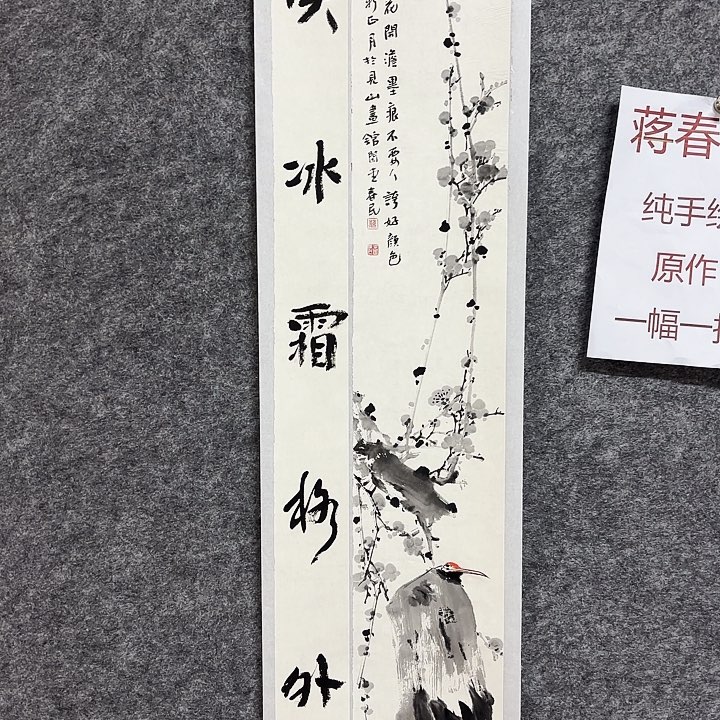 冰霜格外
花開澹墨痕不要人誇好顔色
正月於見山畫館
春民
蒋春
纯手绘
原作
一幅一